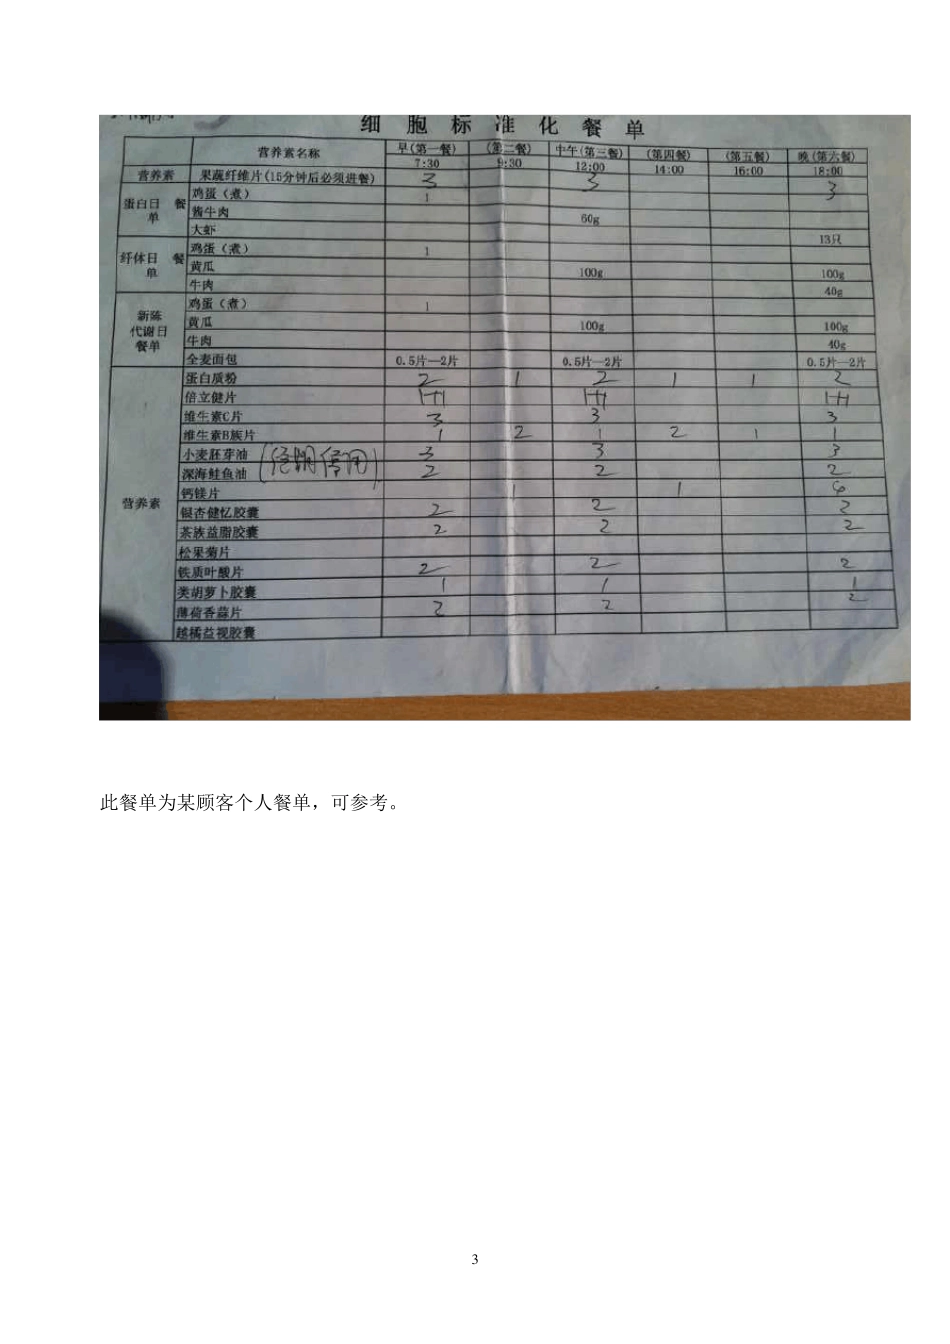 细胞标准化餐单
营养素名称 早(第一餐) (第二餐) 中午(第三餐) (第四餐) (第五餐) 晚(第六餐)
7:30 9:30 12:00 14:00 16:00 18:00
营养素 果蔬纤维片(15分钟后必须进餐) 3 3 3
蛋白日餐单 鸡蛋(煮) 1
酱牛肉 60g
大虾 13只
纤体日餐单 鸡蛋(煮) 1
黄瓜 100g 100g
牛肉 40g
新陈代谢日餐单 鸡蛋(煮) 1
黄瓜 100g 100g
牛肉 40g
全麦面包 0.5片—2片 0.5片—2片 0.5片—2片
营养素 蛋白质粉 2 1 2 1 1 2
倍立健片 1+1 1+1 1+1
维生素C片 3 3 3
维生素B族片 1 2 1 2 1 1
小麦胚芽油 3 3 3
(经期停用)
深海鲑鱼油 2 2 2
钙镁片 1 1 6
银杏健忆胶囊 2 2 2
茶族益脂胶囊 2 2 2
松果菊片
铁质叶酸片 2 2 2
类胡萝卜胶囊 1 1 1
薄荷香蒜片 2 2 2
越橘益视胶囊
此餐单为某顾客个人餐单，可参考。
3